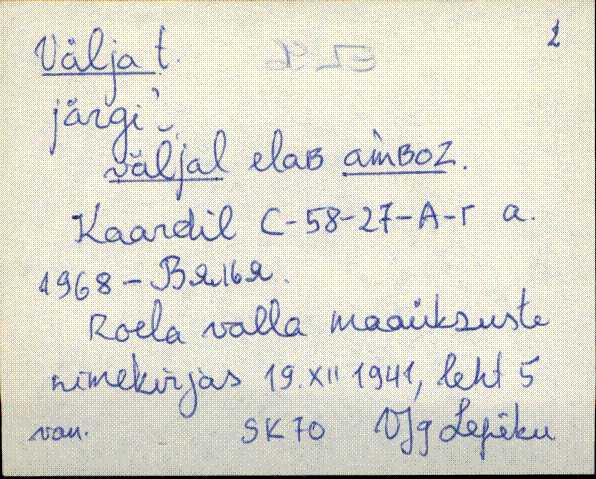 2
Välja t.
järgi,
väljal elaʙ amboz.
Kaardil C-58-27-A-г a.
1968 – Вялья.
Roela valla maaüksuste
nimekirjas 19.XII 1941, leht 5
van. SK70 VJg Lepiku